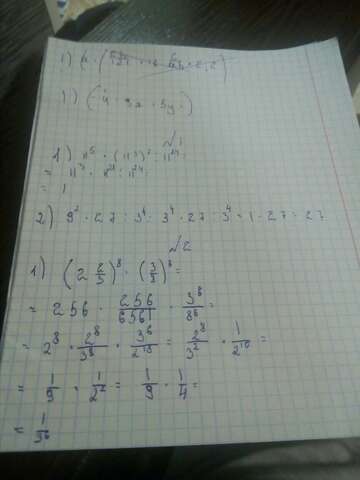 1) (4 · 3x · 5y)
№1
1) 11⁵ · (11³)⁷ : 11²⁴
= 11⁵ · 11²¹ : 11²⁴
= 1
2) 9² · 27 : 3⁴ = 3⁴ · 27 : 3⁴ = 1 · 27 = 27
№2
1) (2 2/3)⁸ · (3/8)⁶ =
= 256 · 256/6561 · 3⁶/8⁶ =
= 2⁸ · 2⁸/3⁸ · 3⁶/2¹⁸ = 2⁸/3² · 1/2¹⁰ =
= 1/9 · 1/2² = 1/9 · 1/4 =
= 1/36